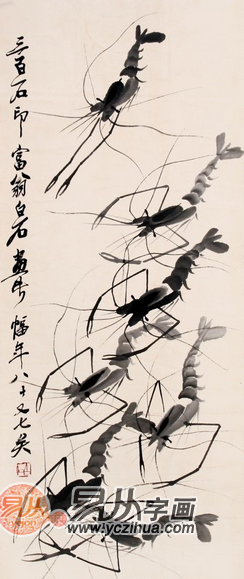 三百石印富翁白石画此幅年八十又七矣
易从字画
www.yczihua.com